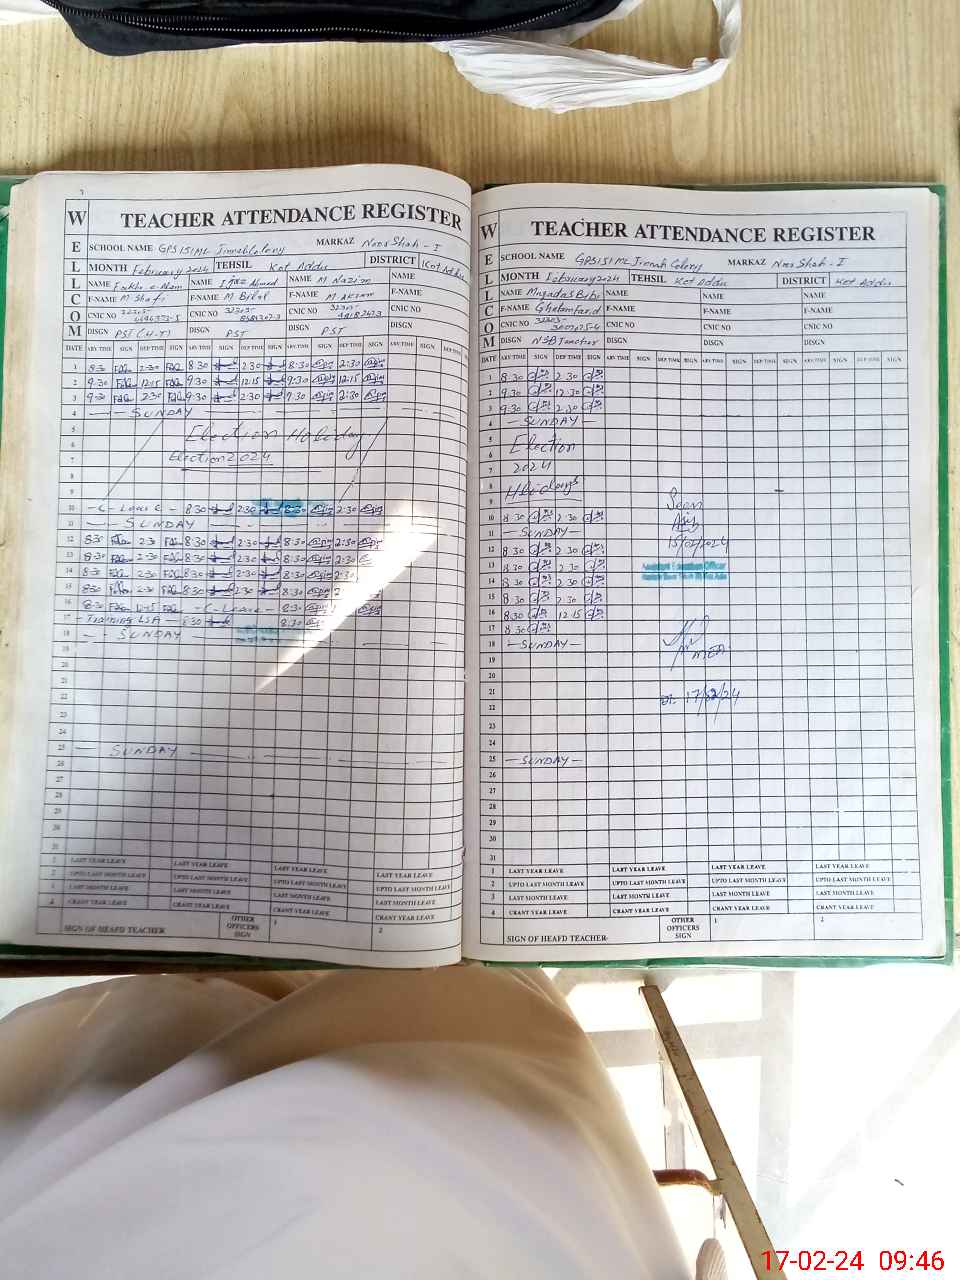 W
E
L
L
C
O
M
TEACHER ATTENDANCE REGISTER
SCHOOL NAME GPS 151 ML Jinnah Colony MARKAZ Noor Shah - I
MONTH February 2024 TEHSIL Kot Addu DISTRICT Kot Addu
NAME NAME Ahmed NAME M Nazim NAME
F-NAME M Shafi F-NAME M Bilal F-NAME M Akram F-NAME
CNIC NO CNIC NO CNIC NO CNIC NO
DISGN PST (H-T) DISGN PST DISGN PST DISGN
DATE ARV TIME SIGN DEP TIME SIGN ARV TIME SIGN DEP TIME SIGN ARV TIME SIGN DEP TIME SIGN ARV TIME SIGN DEP TIME
1 8:30 2:30 8:30 2:30 8:30 2:30
2 9:30 12:15 9:30 12:15 9:30 12:15
3 9:30 2:30 9:30 2:30 9:30 2:30
4 SUNDAY
5 Election Holiday
6
7 Election 2024
8
9
10 - C - Leave - 8:30 2:30 8:30 2:30
11 SUNDAY
12 8:30 2:30 8:30 2:30 8:30 2:30
13 8:30 2:30 8:30 2:30 8:30 2:30
14 8:30 2:30 8:30 2:30 8:30 2:30
15 8:30 2:30 8:30 2:30 8:30
16 8:30 12:15 - C - Leave - 8:30
17 - Training LSA - 8:30 8:30
18 - SUNDAY
19
20
21
22
23
24
25 SUNDAY
26
27
28
29
30
31
1 LAST YEAR LEAVE LAST YEAR LEAVE LAST YEAR LEAVE LAST YEAR LEAVE
2 UPTO LAST MONTH LEAVE UPTO LAST MONTH LEAVE UPTO LAST MONTH LEAVE UPTO LAST MONTH LEAVE
3 LAST MONTH LEAVE LAST MONTH LEAVE LAST MONTH LEAVE LAST MONTH LEAVE
4 CRANT YEAR LEAVE CRANT YEAR LEAVE CRANT YEAR LEAVE CRANT YEAR LEAVE
SIGN OF HEAFD TEACHER OTHER OFFICERS SIGN 1 2
W
E
L
L
C
O
M
TEACHER ATTENDANCE REGISTER
SCHOOL NAME GPS 151 ML Jinnah Colony MARKAZ Noor Shah - I
MONTH February 2024 TEHSIL Kot Addu DISTRICT Kot Addu
NAME Bibi NAME NAME NAME
F-NAME F-NAME F-NAME F-NAME
CNIC NO CNIC NO CNIC NO CNIC NO
DISGN NSB Teacher DISGN DISGN DISGN
DATE ARV TIME SIGN DEP TIME SIGN ARV TIME SIGN DEP TIME SIGN ARV TIME SIGN DEP TIME SIGN ARV TIME SIGN DEP TIME SIGN
1 8:30 2:30
2 9:30 12:30
3 9:30 2:30
4 - SUNDAY -
5
6 Election
7 2024
8
9 Holidays
10 8:30 2:30
11 - SUNDAY -
12 8:30 2:30
13 8:30 2:30
14 8:30 2:30
15 8:30 2:30
16 8:30 12:15
17 8:30
18 - SUNDAY -
19
20
21
22
23
24
25 - SUNDAY -
26
27
28
29
30
31
Seen
15/02/2024
Assistant Education Officer
MEA
Dt. 17/02/24
1 LAST YEAR LEAVE LAST YEAR LEAVE LAST YEAR LEAVE LAST YEAR LEAVE
2 UPTO LAST MONTH LEAVE UPTO LAST MONTH LEAVE UPTO LAST MONTH LEAVE UPTO LAST MONTH LEAVE
3 LAST MONTH LEAVE LAST MONTH LEAVE LAST MONTH LEAVE LAST MONTH LEAVE
4 CRANT YEAR LEAVE CRANT YEAR LEAVE CRANT YEAR LEAVE CRANT YEAR LEAVE
SIGN OF HEAFD TEACHER OTHER OFFICERS SIGN 1 2
17-02-24 09:46